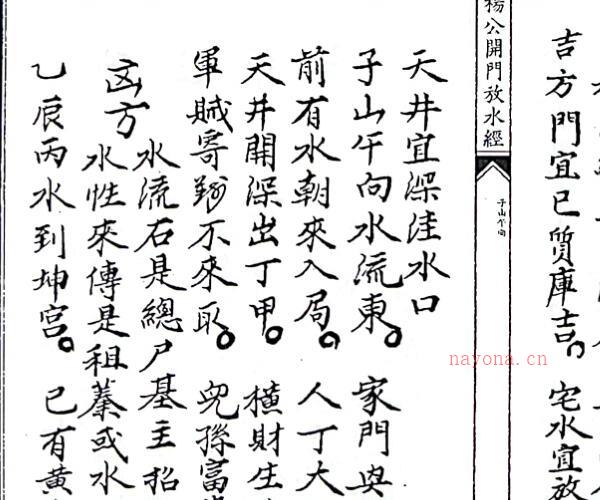 吉方門宜已質庫吉。宅水宜放
楊公開門放水經
子山午向
天井宜深洼水口
子山午向水流東。家門與
前有水朝來入局。人丁大
天井開深出丁甲。橫財生
軍賊寄 不來取。兒孫富
水流石是總尸基主招
凶方水性來傳是祖蓁或水
乙辰丙水到坤宮。已有黃
nayona.cn